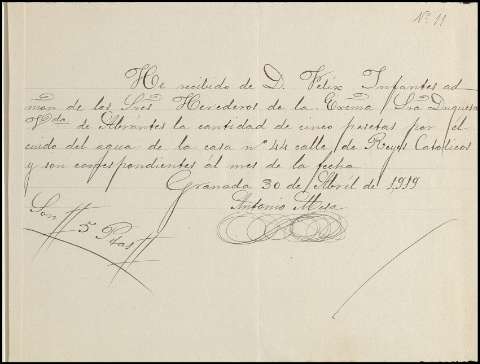 Nº 11
He recibido de D. Felix Infantes ad-
mon de los Sres Herederos de la Excma Sra Duquesa
Vda de Abrantes la cantidad de cinco pesetas por el
cuido del agua de la casa nº 44 calle de Reyes Catolicos
y son correspondientes al mes de la fecha
Granada 30 de Abril de 1919
Antonio Mesa
Son 5 Ptas